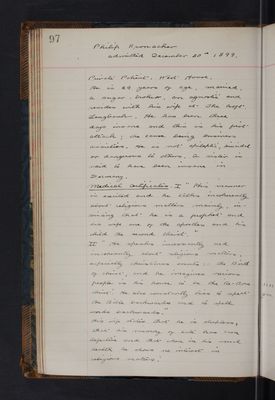 97
Philip Kronacher
admitted December 20th 1899.
Private Patient. West House.
He is 29 years of age, married,
a sugar broker, an agnostic and
resides with his wife at The Crest
He has been three
days insane and this is his first
attack; the cause being business
anxieties. He is not epileptic, suicidal
or dangerous to others. A sister is
said to have been insane in
Germany.
Medical Certificates. I "This
is excited and he talks incessantly
about religious matters,
that he is a prophet and
his wife one of the apostles and his
child the second Christ".
II "He speaks incessantly and
incoherently about religious matters,
especially christmas events; the Birth
of Christ, and he imagines various
people in his house to be the
Christ. He also constantly tries to
the Bible backwards and to spell
words backwards."
His wife states that he is sleepless,
that his memory of late has been
defective and that when in his usual
health he shows no interest in
religious matters.